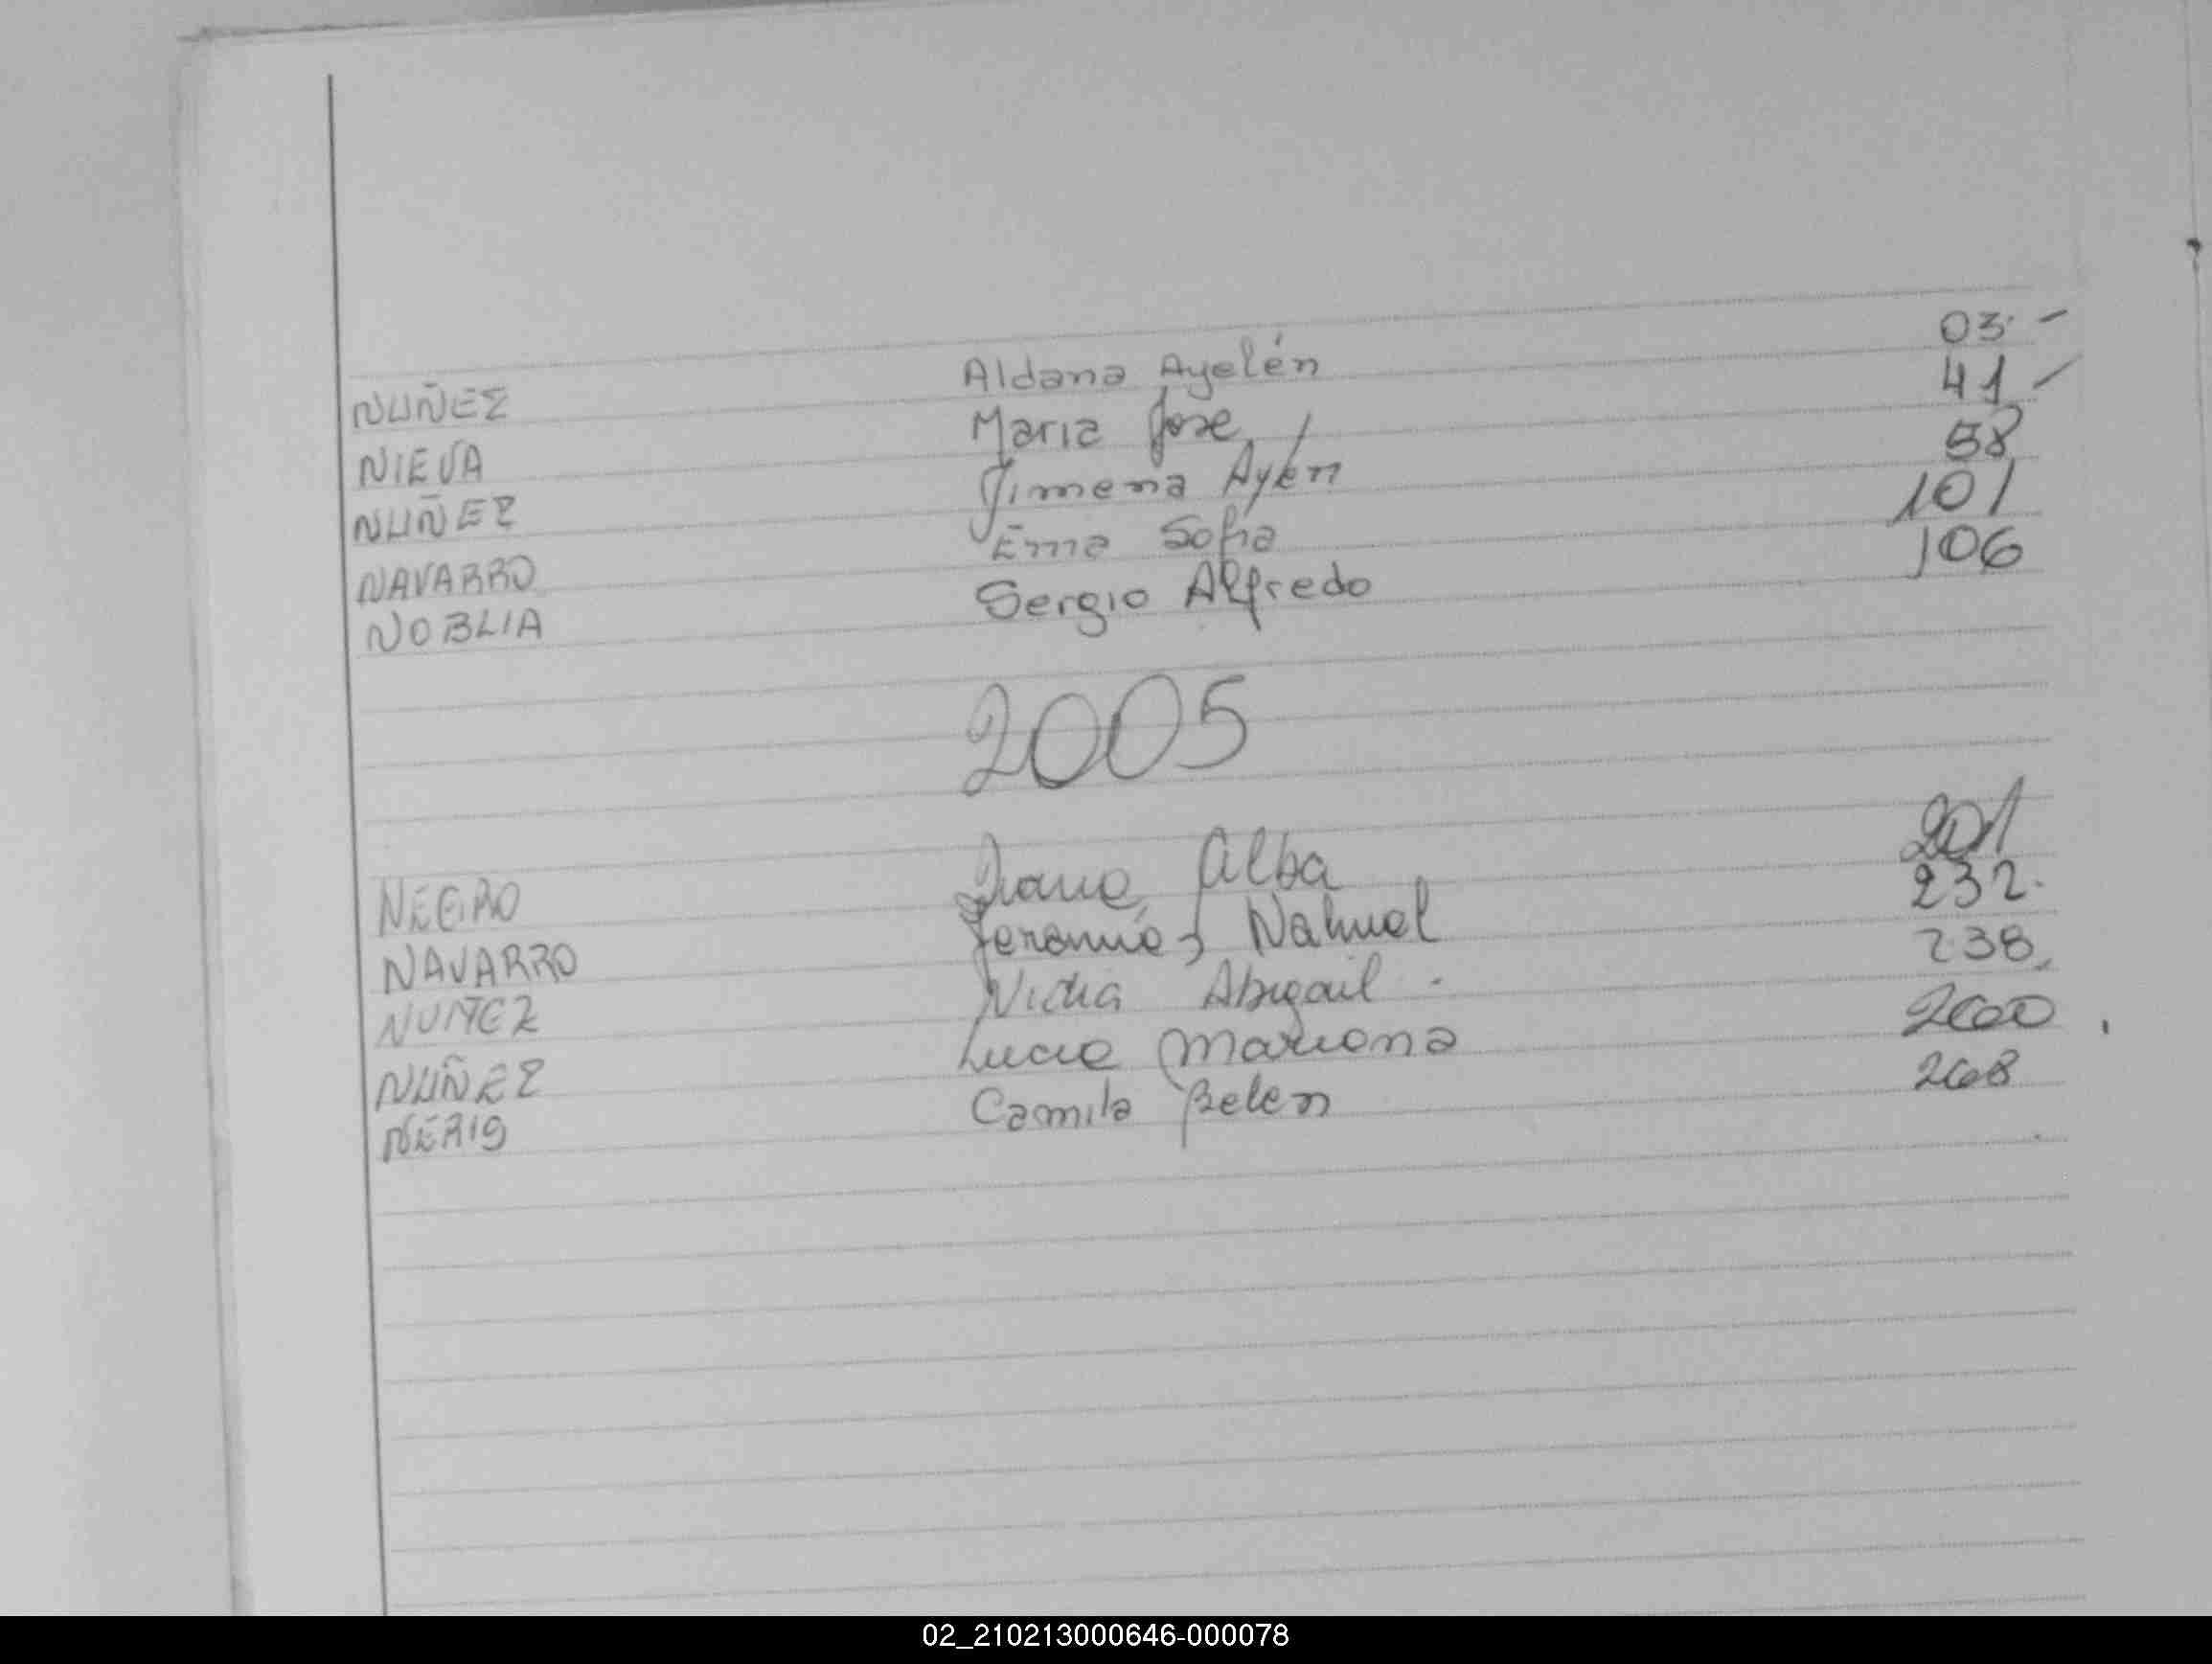 NUÑEZ Aldana Ayelén 03. -
NIEVA Maria Jose 41 -
NUÑEZ Jimena Ayén 58
NAVARRO Ema Sofia 101
NOBLIA Sergio Alfredo 106
2005
NEGRO Alba 201
NAVARRO Nahuel 232.
NUÑEZ Nidia Abigail . 238
NUÑEZ Lucia Mariana 260
NERIS Camila Belen 268
02_210213000646-000078